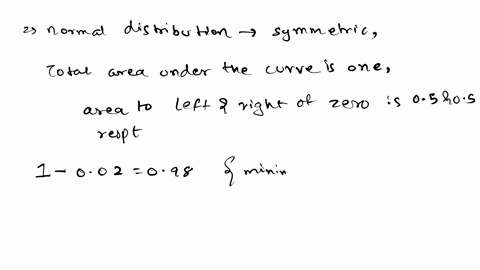 2) normal distribution → symmetric,
Total area under the curve is one,
area to left & right of zero is 0.5 & 0.5
respt
1 - 0.02 = 0.98 { minin